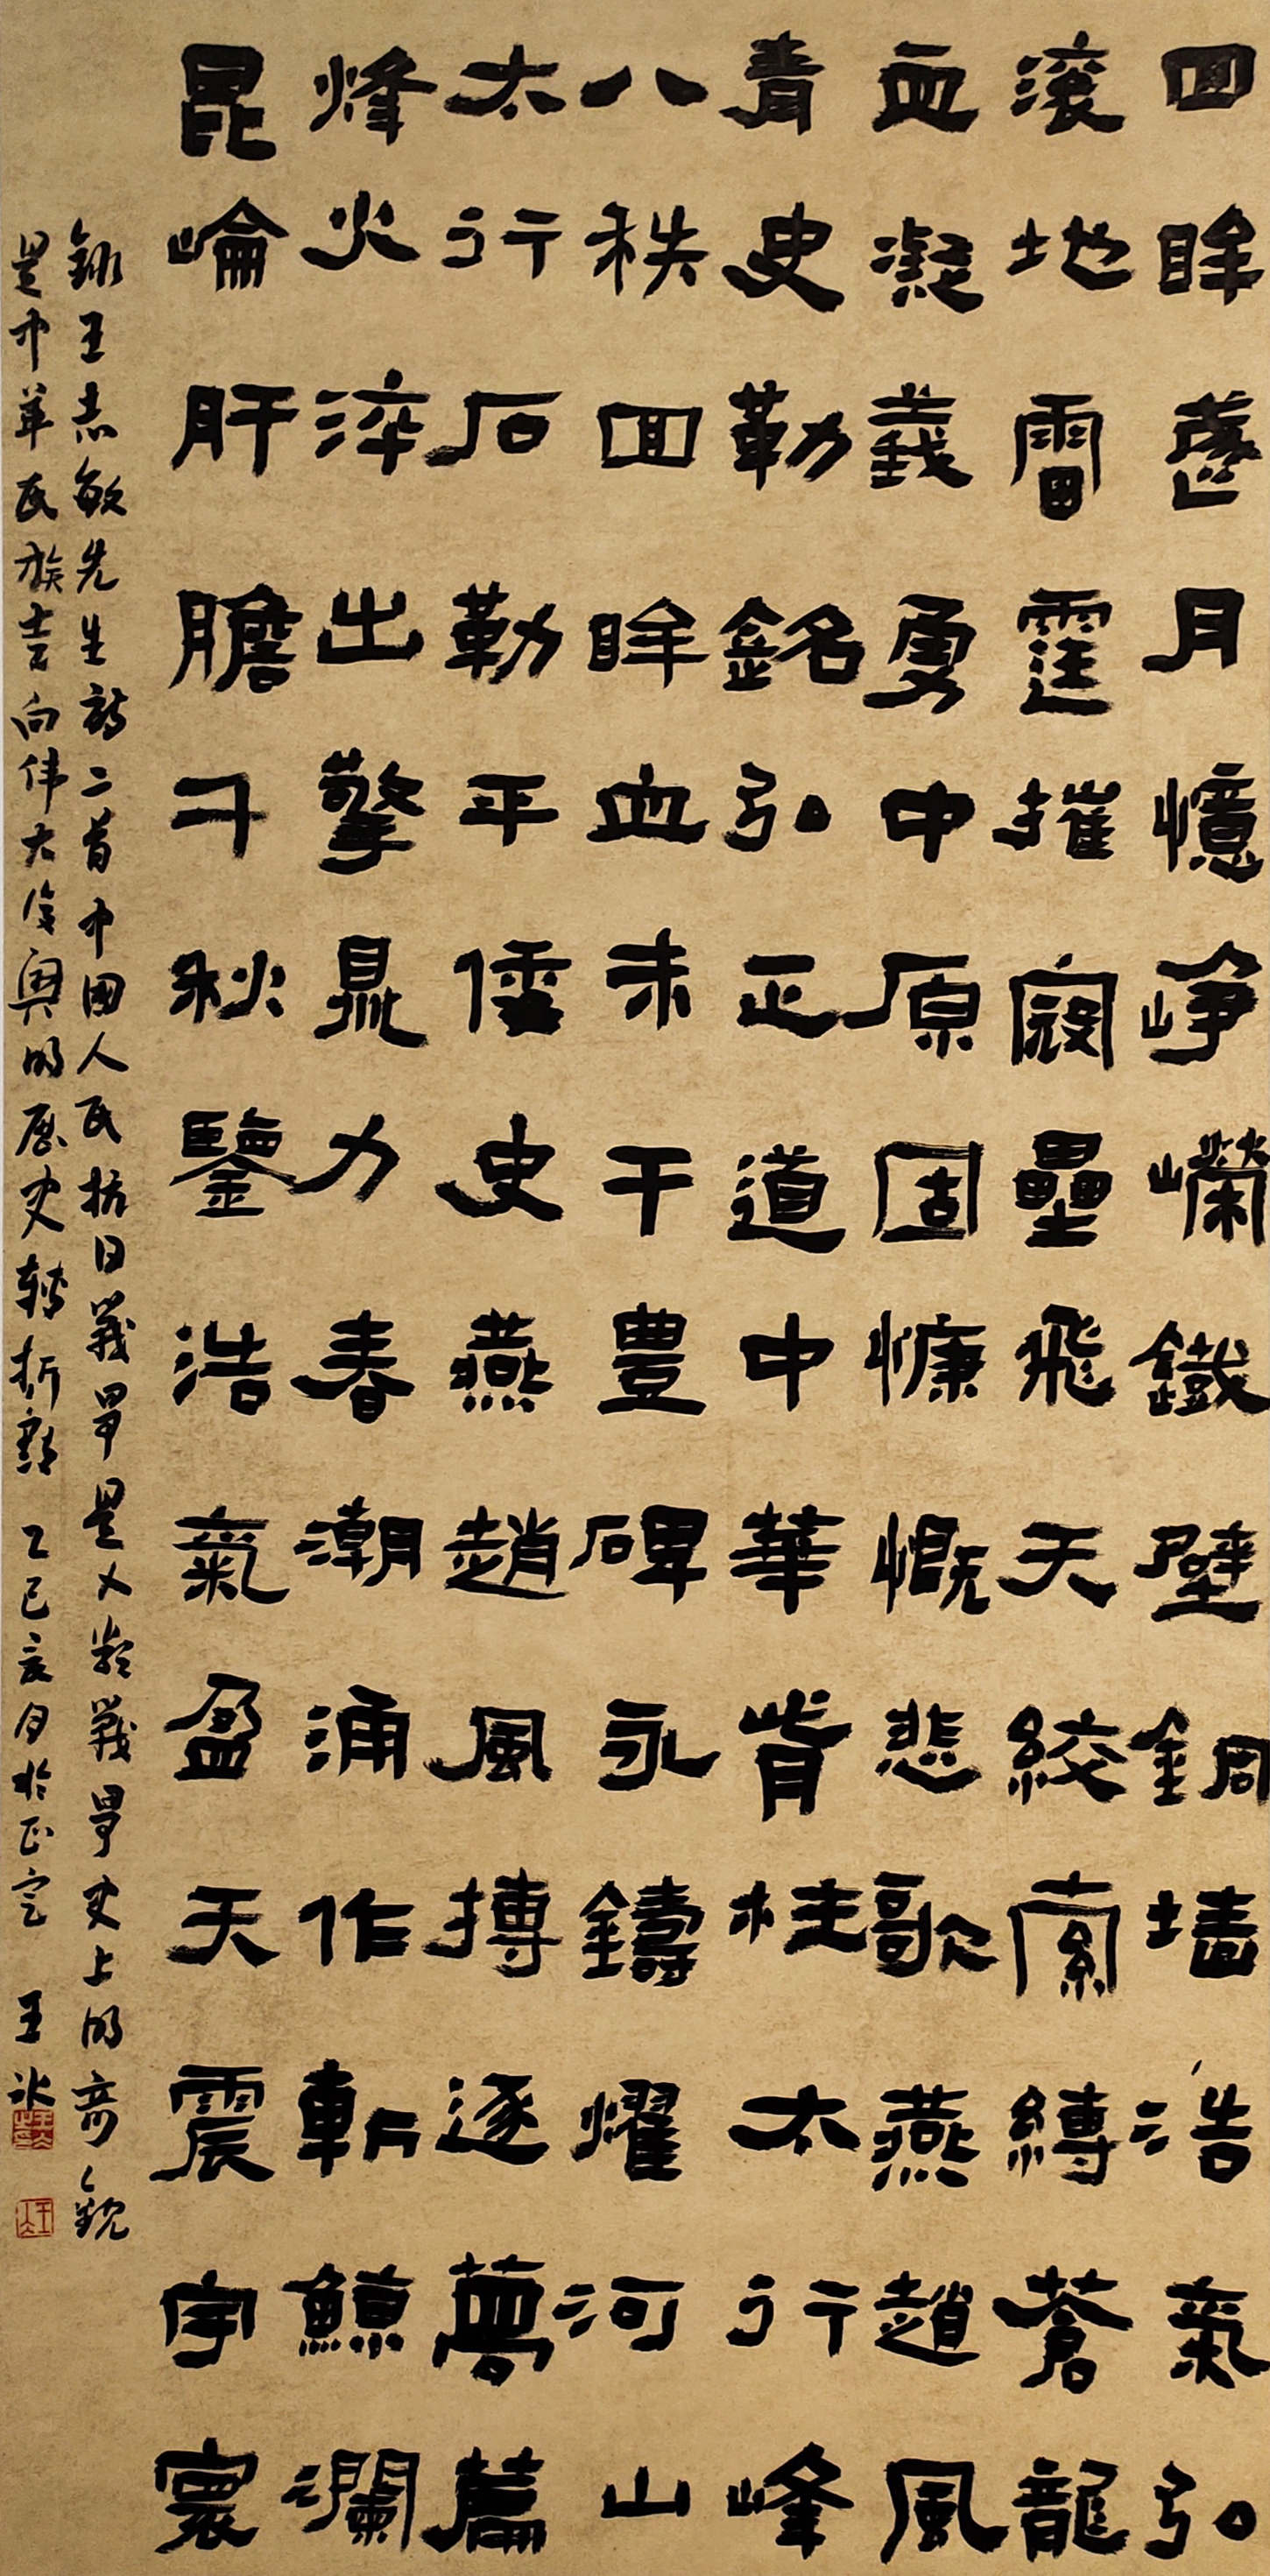 回眸蘆月憶崢嶸鐵壁銅墻浩氣弘
滾地雷霆摧寇壘飛天絞索縛蒼龍
血凝義勇中原固慷慨悲歌燕趙風
青史勒銘弘正道中華脊柱太行峰
八秩回眸血未干豐碑永鑄耀河山
太行石勒平倭史燕趙風摶逐夢篇
烽火淬出擎鼎力春潮涌作斬鯨瀾
昆崙肝膽千秋鑒浩氣盈天震宇寰
錄王志敏先生詩二首中國人民抗日戰爭是人類戰爭史上的奇觀
是中華民族走向伟大復興的歷史轉折點 乙巳亥月於正定 王冰